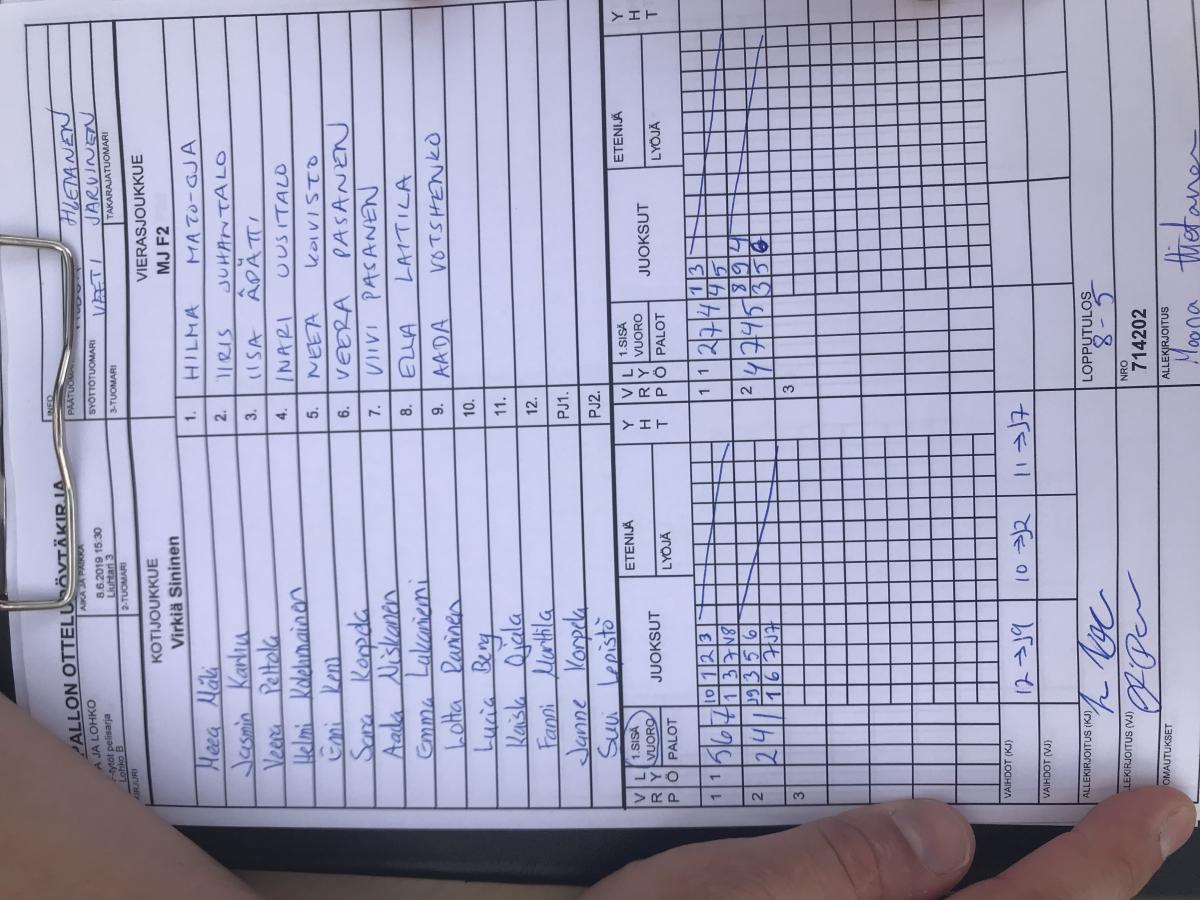 PALLON OTTELUPÖYTÄKIRJA
A JA LOHKO
-tytöt pelisarja
Lohko B
AIKA JA PAIKKA
8.6.2019 15:30
Liuhtari 3
2-TUOMARI
INFO
SYÖTTÖTUOMARI VEETI JÄRVINEN
3-TUOMARI
TAKARAJATUOMARI
KOTIJOUKKUE
Virkiä Sininen
VIERASJOUKKUE
MJ F2
Meea Mäki 1. HILMA MATO-OJA
Jasmin Karhu 2. IIRIS JUHANTALO
Veera Peltola 3. IISA ÄPÄTTI
4. INARI UUSITALO
5. NEEA KOIVISTO
Sara Korpela 6. VEERA PASANEN
Aada Niskanen 7. VIIVI PASANEN
Emma Lakaniemi 8. ELLA LAITILA
Lotta Raninen 9. AADA VOTSHENKO
Lucia Berg 10.
Kaisla Ojala 11.
Fanni Marttila 12.
Janne Korpela PJ1.
Suvi Lepistö PJ2.
V R P L Y Ö 1.SISÄ VUORO PALOT JUOKSUT ETENIJÄ LYÖJÄ Y H T V R P L Y Ö 1.SISÄ VUORO PALOT JUOKSUT ETENIJÄ LYÖJÄ Y H T
1 1 5 6 7 10 1 2 3 1 1 2 7 4 1 3
1 3 7 J8 4 4 5
2 2 4 1 J9 3 5 6 2 4 7 4 5 8 9 4
1 6 7 J7 3 5 6
3 3
VAIHDOT (KJ) 12→J9 10→J2 11→J7
VAIHDOT (VJ)
ALLEKIRJOITUS (KJ)
LOPPUTULOS
8-5
LEKIRJOITUS (VJ)
NRO
714202
OMAUTUKSET
ALLEKIRJOITUS
Moona Hietanen